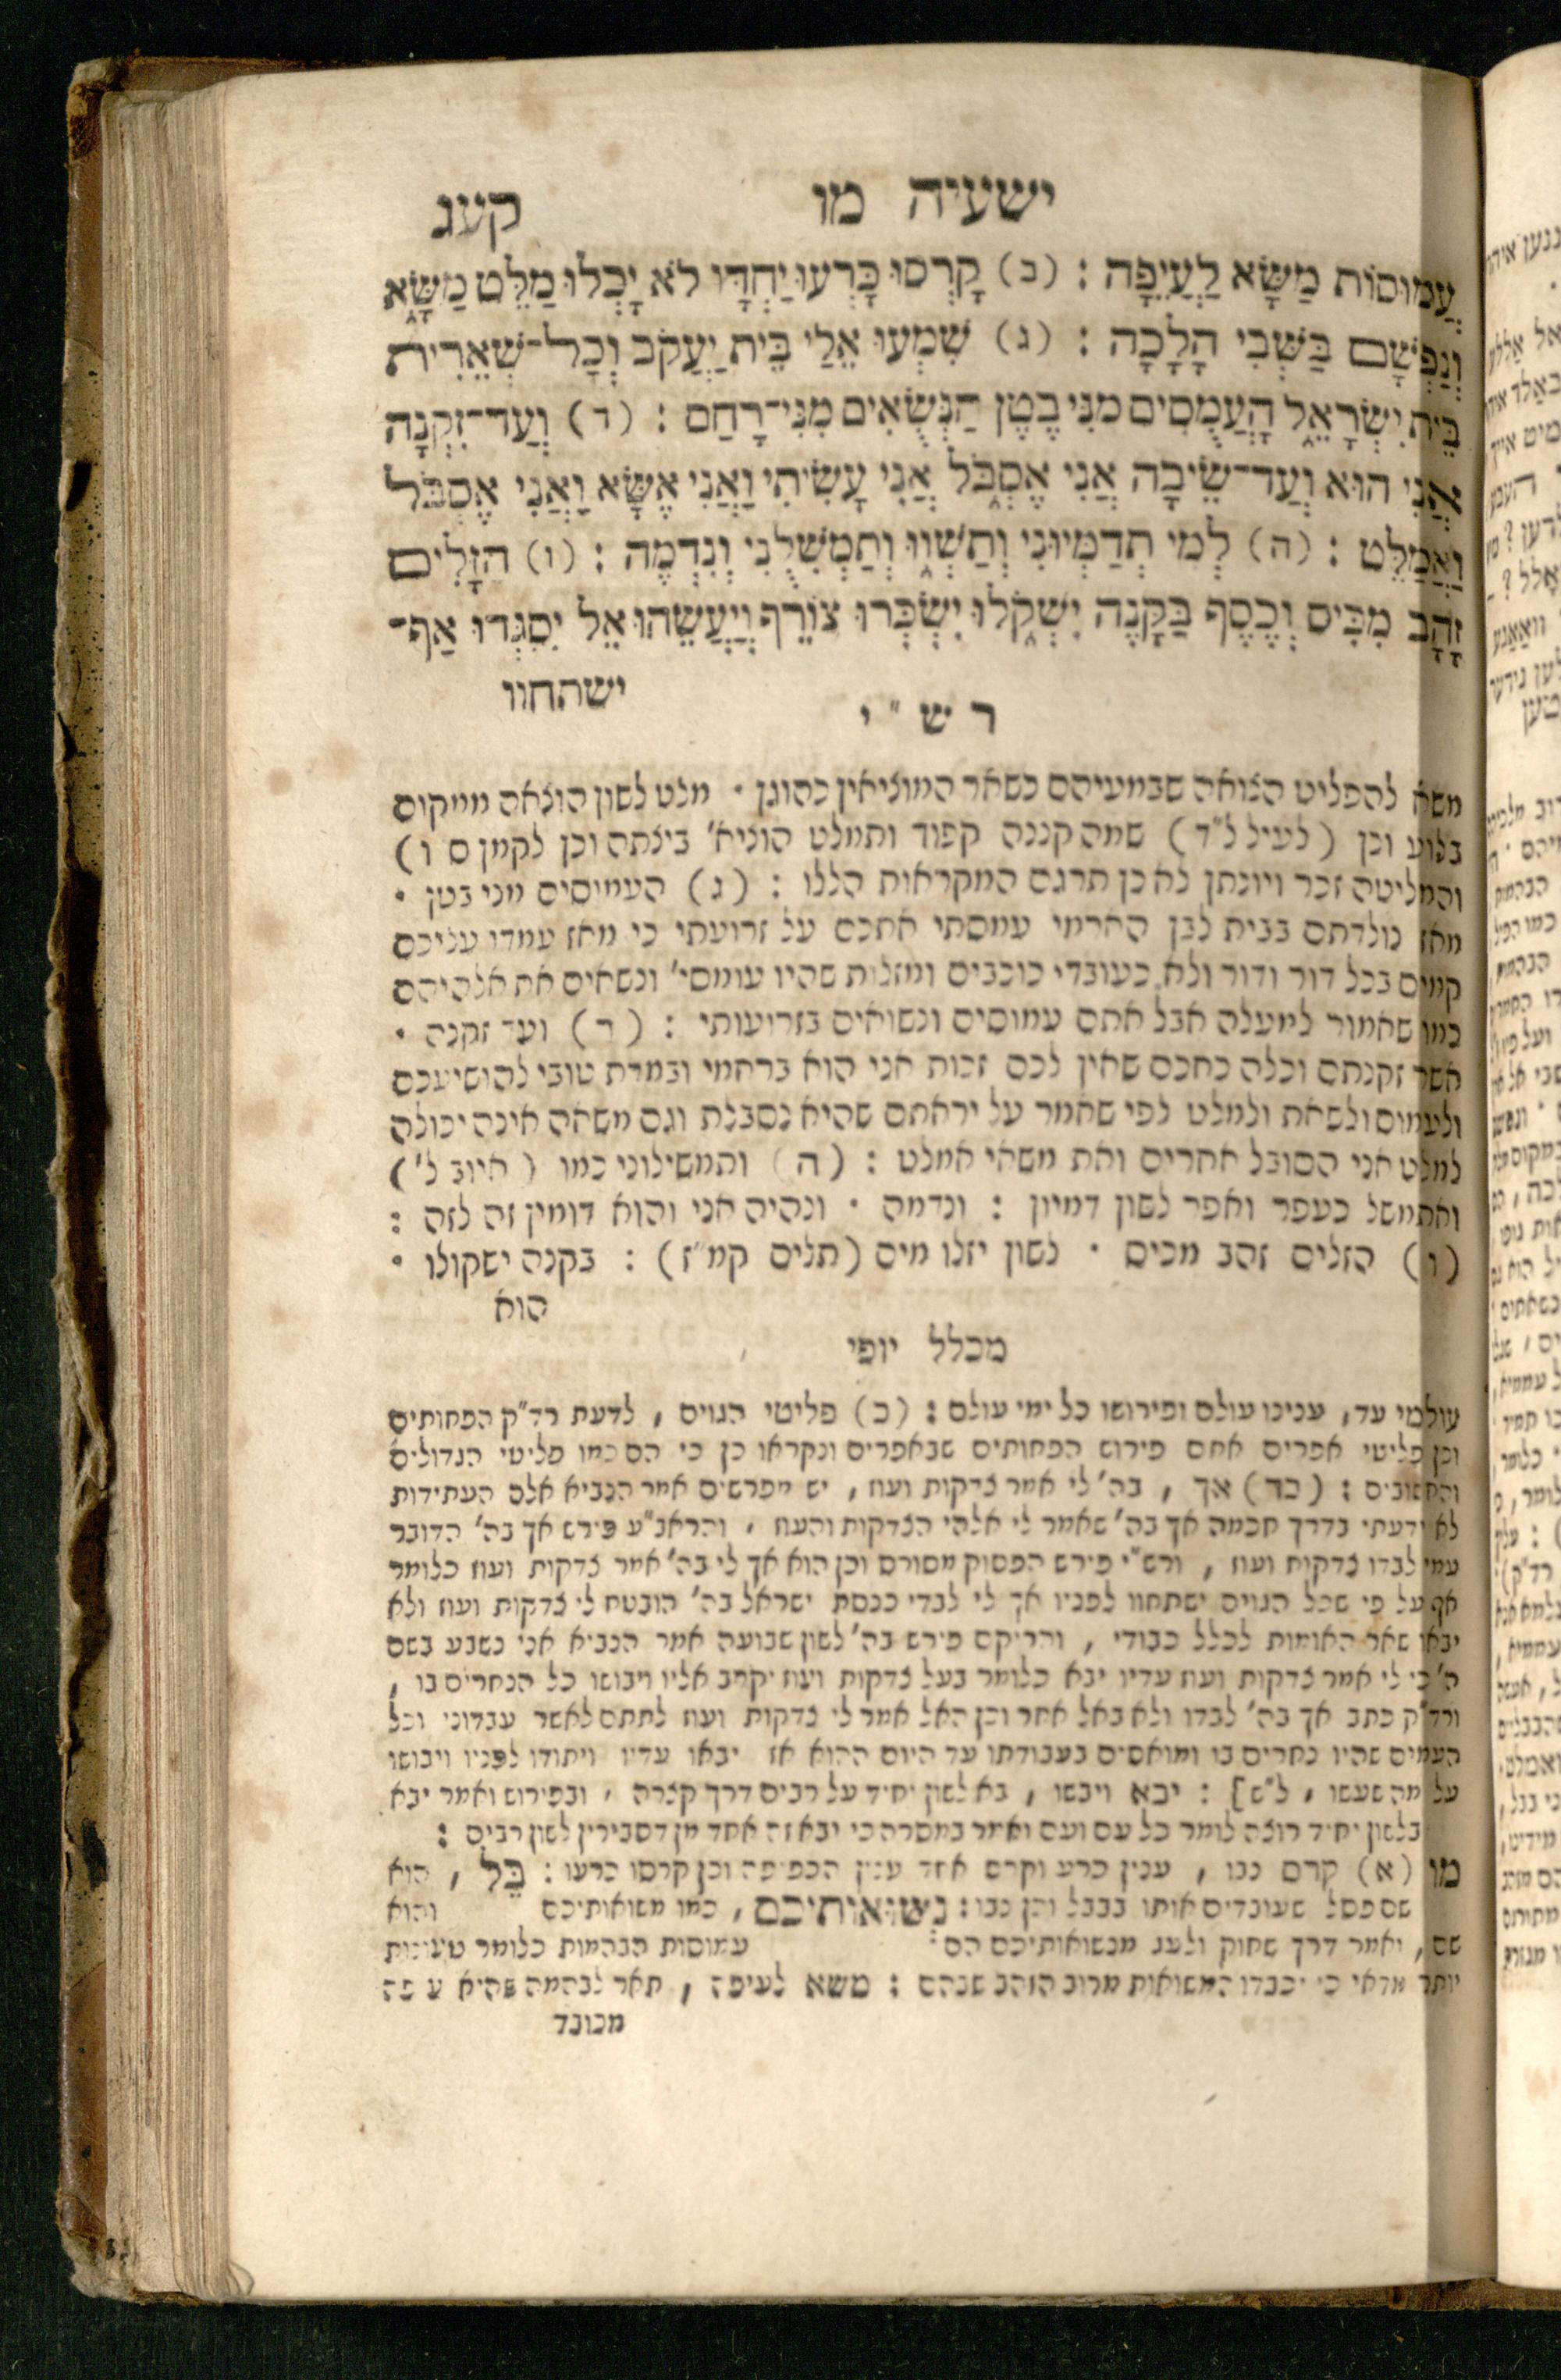 ישעיה מו קעג
עֲמוּסוֹת מַשָּׂא לַעֲיֵפָה : (ב) קָרְסוּ כָּרְעוּ יַחְדָּו לֹא יָכְלוּ מַלֵּט מַשָּׂא
וְנַפְשָׁם בַּשְּׁבִי הָלָכָה : (ג) שִׁמְעוּ אֵלַי בֵּית יַעֲקֹב וְכָל־שְׁאֵרִית
בֵּית יִשְׂרָאֵל הָעֲמֻסִים מִנִּי בֶטֶן הַנְּשֻׂאִים מִנִּי־רָחַם : (ד) וְעַד־זִקְנָה
אֲנִי הוּא וְעַד־שֵׂיבָה אֲנִי אֶסְבֹּל אֲנִי עָשִׂיתִי וַאֲנִי אֶשָּׂא וַאֲנִי אֶסְבֹּל
וַאֲמַלֵּט : (ה) לְמִי תְדַמְיוּנִי וְתַשְׁווּ וְתַמְשִׁלֻנִי וְנִדְמֶה : (ו) הַזָּלִים
זָהָב מִכִּיס וְכֶסֶף בַּקָּנֶה יִשְׁקֹלוּ יִשְׂכְּרוּ צוֹרֵף וְיַעֲשֵׂהוּ אֵל יִסְגְּדוּ אַף־
ישתחוו
ר ש " י
משא להפליט הצואה שבמעיהם כשאר המוציאין כהוגן · מלט לשון הוצאה ממקום
בלוע וכן (לעיל ל"ד) שמה קננה קפוד ותמלט הוציא' ביצתה וכן לקמן ס ו)
והמליטה זכר ויונתן לא כן תרגם המקראות הללו : (ג) העמוסים מני בטן ·
מאז נולדתם בבית לבן הארמי עמסתי אתכם על זרועתי כי מאז עמדו עליכם
קמים בכל דור ודור ולא כעובדי כוכבים ומזלות שהיו עומסי' ונשאים את אלהיהם
כמו שאמור למעלה אבל אתם עמוסים ונשואים בזריעותי : (ד) ועד זקנה ·
אשר זקנתם וכלה כחכם שאין לכם זכות אני הוא ברחמי ובמדת טובי להושיעכם
ולעמוס ולשאת ולמלט לפי שאמר על יראתם שהיא נסבלת וגם משאה אינה יכולה
למלט אני הסובל אחרים ואת משאי אמלט : (ה) ותמשילוני כמו (איוב ל')
ואתמשל כעפר ואפר לשון דמיון : ונדמה · ונהיה אני והוא דומין זה לזה :
(ו) הזלים זהב מכיס · לשון יזלו מים (תלים קמ"ז) : בקנה ישקולו ·
הוא
מכלל יופי
עולמי עד, ענינו עולם ופירושו כל ימי עולם : (כ) פליטי הגוים , לדעת רד"ק הפחותים
וכן פליטי אפרים אתם פירוש הפחותים שבאפרים ונקראו כן כי הם כמו פליטי הגדולים
והחשובים : (כד) אך , בה' לי אמר צדקות ועוז, יש מפרשים אמר הנביא אלם העתידות
לא ידעתי בדרך חכמה אך בה' שאמר לי אלהי הצדקות והעוז , והראב"ע פירש אך בה' הדובר
עמי לבדו צדקות ועוז , ורש"י פירש הפסוק מסורס וכן הוא אך לי בה' אמר צדקות ועוז כלומר
אף על פי שכל הגוים ישתחוו לפניו אך לי לבדי כנסת ישראל בה' הובטח לי צדקות ועוז ולא
יבאו שאר האומות לכלל כבודי , והריקם פירש בה' לשון שבועה אמר הנביא אני נשבע בשם
ה' כי לי אמר צדקות ועוז עדיו יבא כלומר בעל צדקות ועוז יקרב אליו ויבושו כל הנחרים בו ,
ורד"ק כתב אך בה' לבדו ולא באל אחר וכן האל אמר לי צדקות ועוז לתתם לאשר עבדוני וכל
העמים שהיו נחרים בו ומואסים בעבודתו עד היום ההוא אז יבאו עדיו ויתודו לפניו ויבושו
על מה שעשו , ל"ש] : יבא ויבשו , בא לשון יחיד על רבים דרך קצרה , ובפירוש ואמר יבא
בלשון יחיד רוצה לומר כל עם ועם ואמר במסרה כי יבא זה אחד מן דסבירין לשון רבים :
מו (א) קרס נבו , ענין כרע וקרס אחד ענין הכפיפה וכן קרסו כרעו : בֵּל , הוא
שם פסל שעובדים אותו בבבל וכן נבו : נְשׂוּאוֹתֵיכֶם , כמו משואותיכם והוא
שם , ואמר דרך שחוק ולעג מנשואותיכם הם עמוסות הבהמות כלומר טעונות
יותר מדאי כי יכבדו המשואות מרוב הזהב שבהם : משא לעיפה , תאר לבהמה שהיא עיפה
מכובד